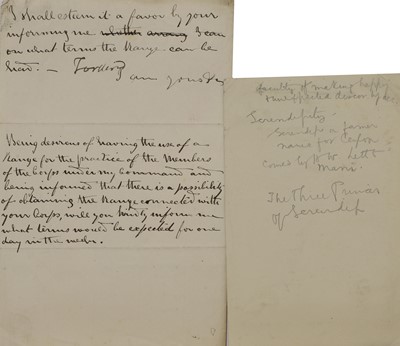 I shall esteem it a favor by your
informing me whether among I can
on what terms the Range can be
hired. —
I am yours
Being desirous of having the use of a
Range for the practice of the Members
of the Corps under my Command and
being informed that there is a possibility
of obtaining the Range connected with
your Corps, will you kindly inform me
what terms would be expected for one
day in the week.
faculty of making happy
& unexpected discoveries
Serendipity.
Serendip a former
name for Ceylon
coined by H. W. Lett
The Three Princes
of Serendip